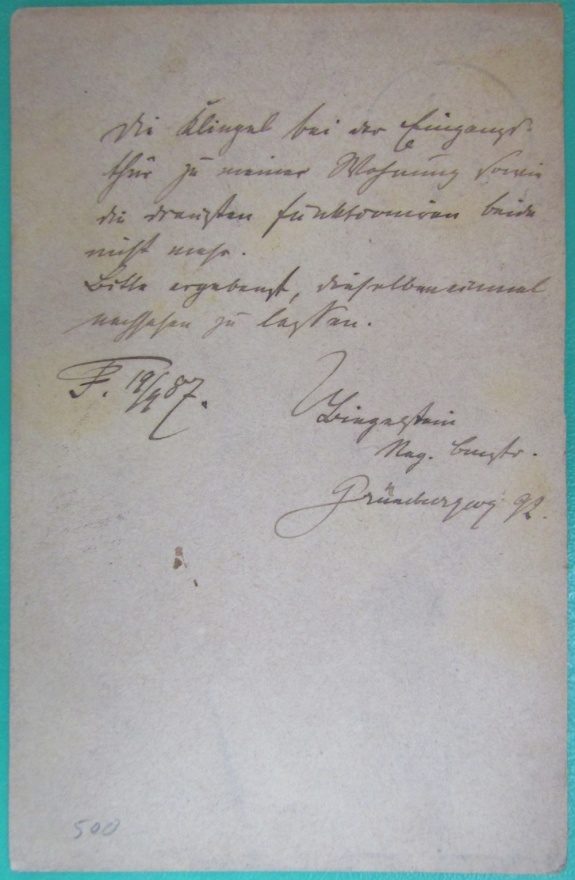 Die Klingel bei der Eingangs-
thür zu meiner Wohnung sowie
die draußen funktioniren beide
nicht mehr.
Bitte ergebenst, dieselben einmal
nachsehen zu lassen.
F. 19/9 87.
Reg. Bmstr.
Grüneburgweg 92.
500